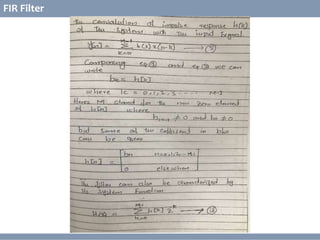 FIR Filter
The convolution of impulse response h(k)
of the system with the input signal
y[n] = Σ h(k) x(n-k) → (3)
M-1
k=0
Comparing eq and eq we can
write
bk = h[k]
where k = 0,1,2,3 - - - - M-1
Here M stand for the non zero element
of h[k] where
bM-1 ≠ 0 and b0 ≠ 0
but some of the coefficient in
can be zero
h[n] = bn n=0,1,2-M-1
0 elsewhere
The filter can also be characterized by
its system function
M-1
H(z) = Σ h[k] z^-k → (4)
k=0